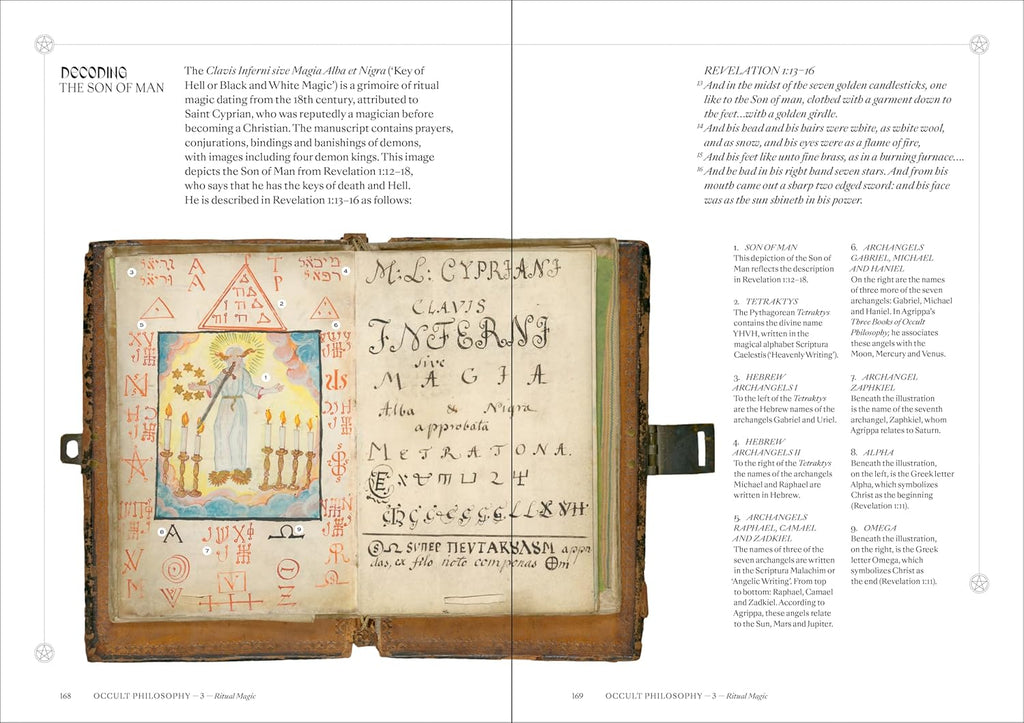 DECODING
THE SON OF MAN
The Clavis Inferni sive Magia Alba et Nigra (‘Key of
Hell or Black and White Magic’) is a grimoire of ritual
magic dating from the 18th century, attributed to
Saint Cyprian, who was reputedly a magician before
becoming a Christian. The manuscript contains prayers,
conjurations, bindings and banishings of demons,
with images including four demon kings. This image
depicts the Son of Man from Revelation 1:12–18,
who says that he has the keys of death and Hell.
He is described in Revelation 1:13–16 as follows:
REVELATION 1:13–16
13 And in the midst of the seven golden candlesticks, one
like to the Son of man, clothed with a garment down to
the feet…with a golden girdle.
14 And his head and his hairs were white, as white wool,
and as snow, and his eyes were as a flame of fire,
15 And his feet like unto fine brass, as in a burning furnace….
16 And he had in his right hand seven stars. And from his
mouth came out a sharp two edged sword: and his face
was as the sun shineth in his power.
A
A
T
P
3
4
2
5
6
1
8
7
9
A
Ω
M: L: CYPRIANI
CLAVIS
INFERNI
sive
MAGIA
Alba & Nigra
approbata
METRATONA.
SUPER
1. SON OF MAN
This depiction of the Son of
Man reflects the description
in Revelation 1:12–18.
2. TETRAKTYS
The Pythagorean Tetraktys
contains the divine name
YHVH, written in the
magical alphabet Scriptura
Caelestis (‘Heavenly Writing’).
3. HEBREW
ARCHANGELS I
To the left of the Tetraktys
are the Hebrew names of the
archangels Gabriel and Uriel.
4. HEBREW
ARCHANGELS II
To the right of the Tetraktys
the names of the archangels
Michael and Raphael are
written in Hebrew.
15. ARCHANGELS
RAPHAEL, CAMAEL
AND ZADKIEL
The names of three of the
seven archangels are written
in the Scriptura Malachim or
‘Angelic Writing’. From top
to bottom: Raphael, Camael
and Zadkiel. According to
Agrippa, these angels relate
to the Sun, Mars and Jupiter.
6. ARCHANGELS
GABRIEL, MICHAEL
AND HANIEL
On the right are the names
of three more of the seven
archangels: Gabriel, Michael
and Haniel. In Agrippa’s
Three Books of Occult
Philosophy, he associates
these angels with the
Moon, Mercury and Venus.
7. ARCHANGEL
ZAPHKIEL
Beneath the illustration
is the name of the seventh
archangel, Zaphkiel, whom
Agrippa relates to Saturn.
8. ALPHA
Beneath the illustration,
on the left, is the Greek letter
Alpha, which symbolizes
Christ as the beginning
(Revelation 1:11).
9. OMEGA
Beneath the illustration,
on the right, is the Greek
letter Omega, which
symbolizes Christ as
the end (Revelation 1:11).
168 OCCULT PHILOSOPHY — 3 — Ritual Magic
169 OCCULT PHILOSOPHY — 3 — Ritual Magic